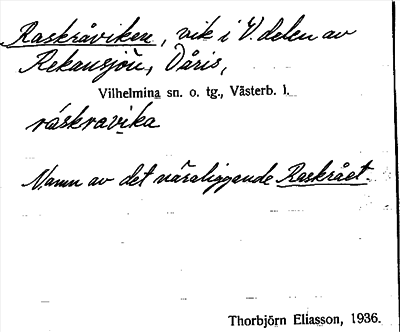 Raskråviken, vik i V. delen av
Rekansjön, Dåris,
Vilhelmina sn. o. tg., Västerb. l.
råskravika
Namn av det näraliggande Raskrået.
Thorbjörn Eliasson, 1936.